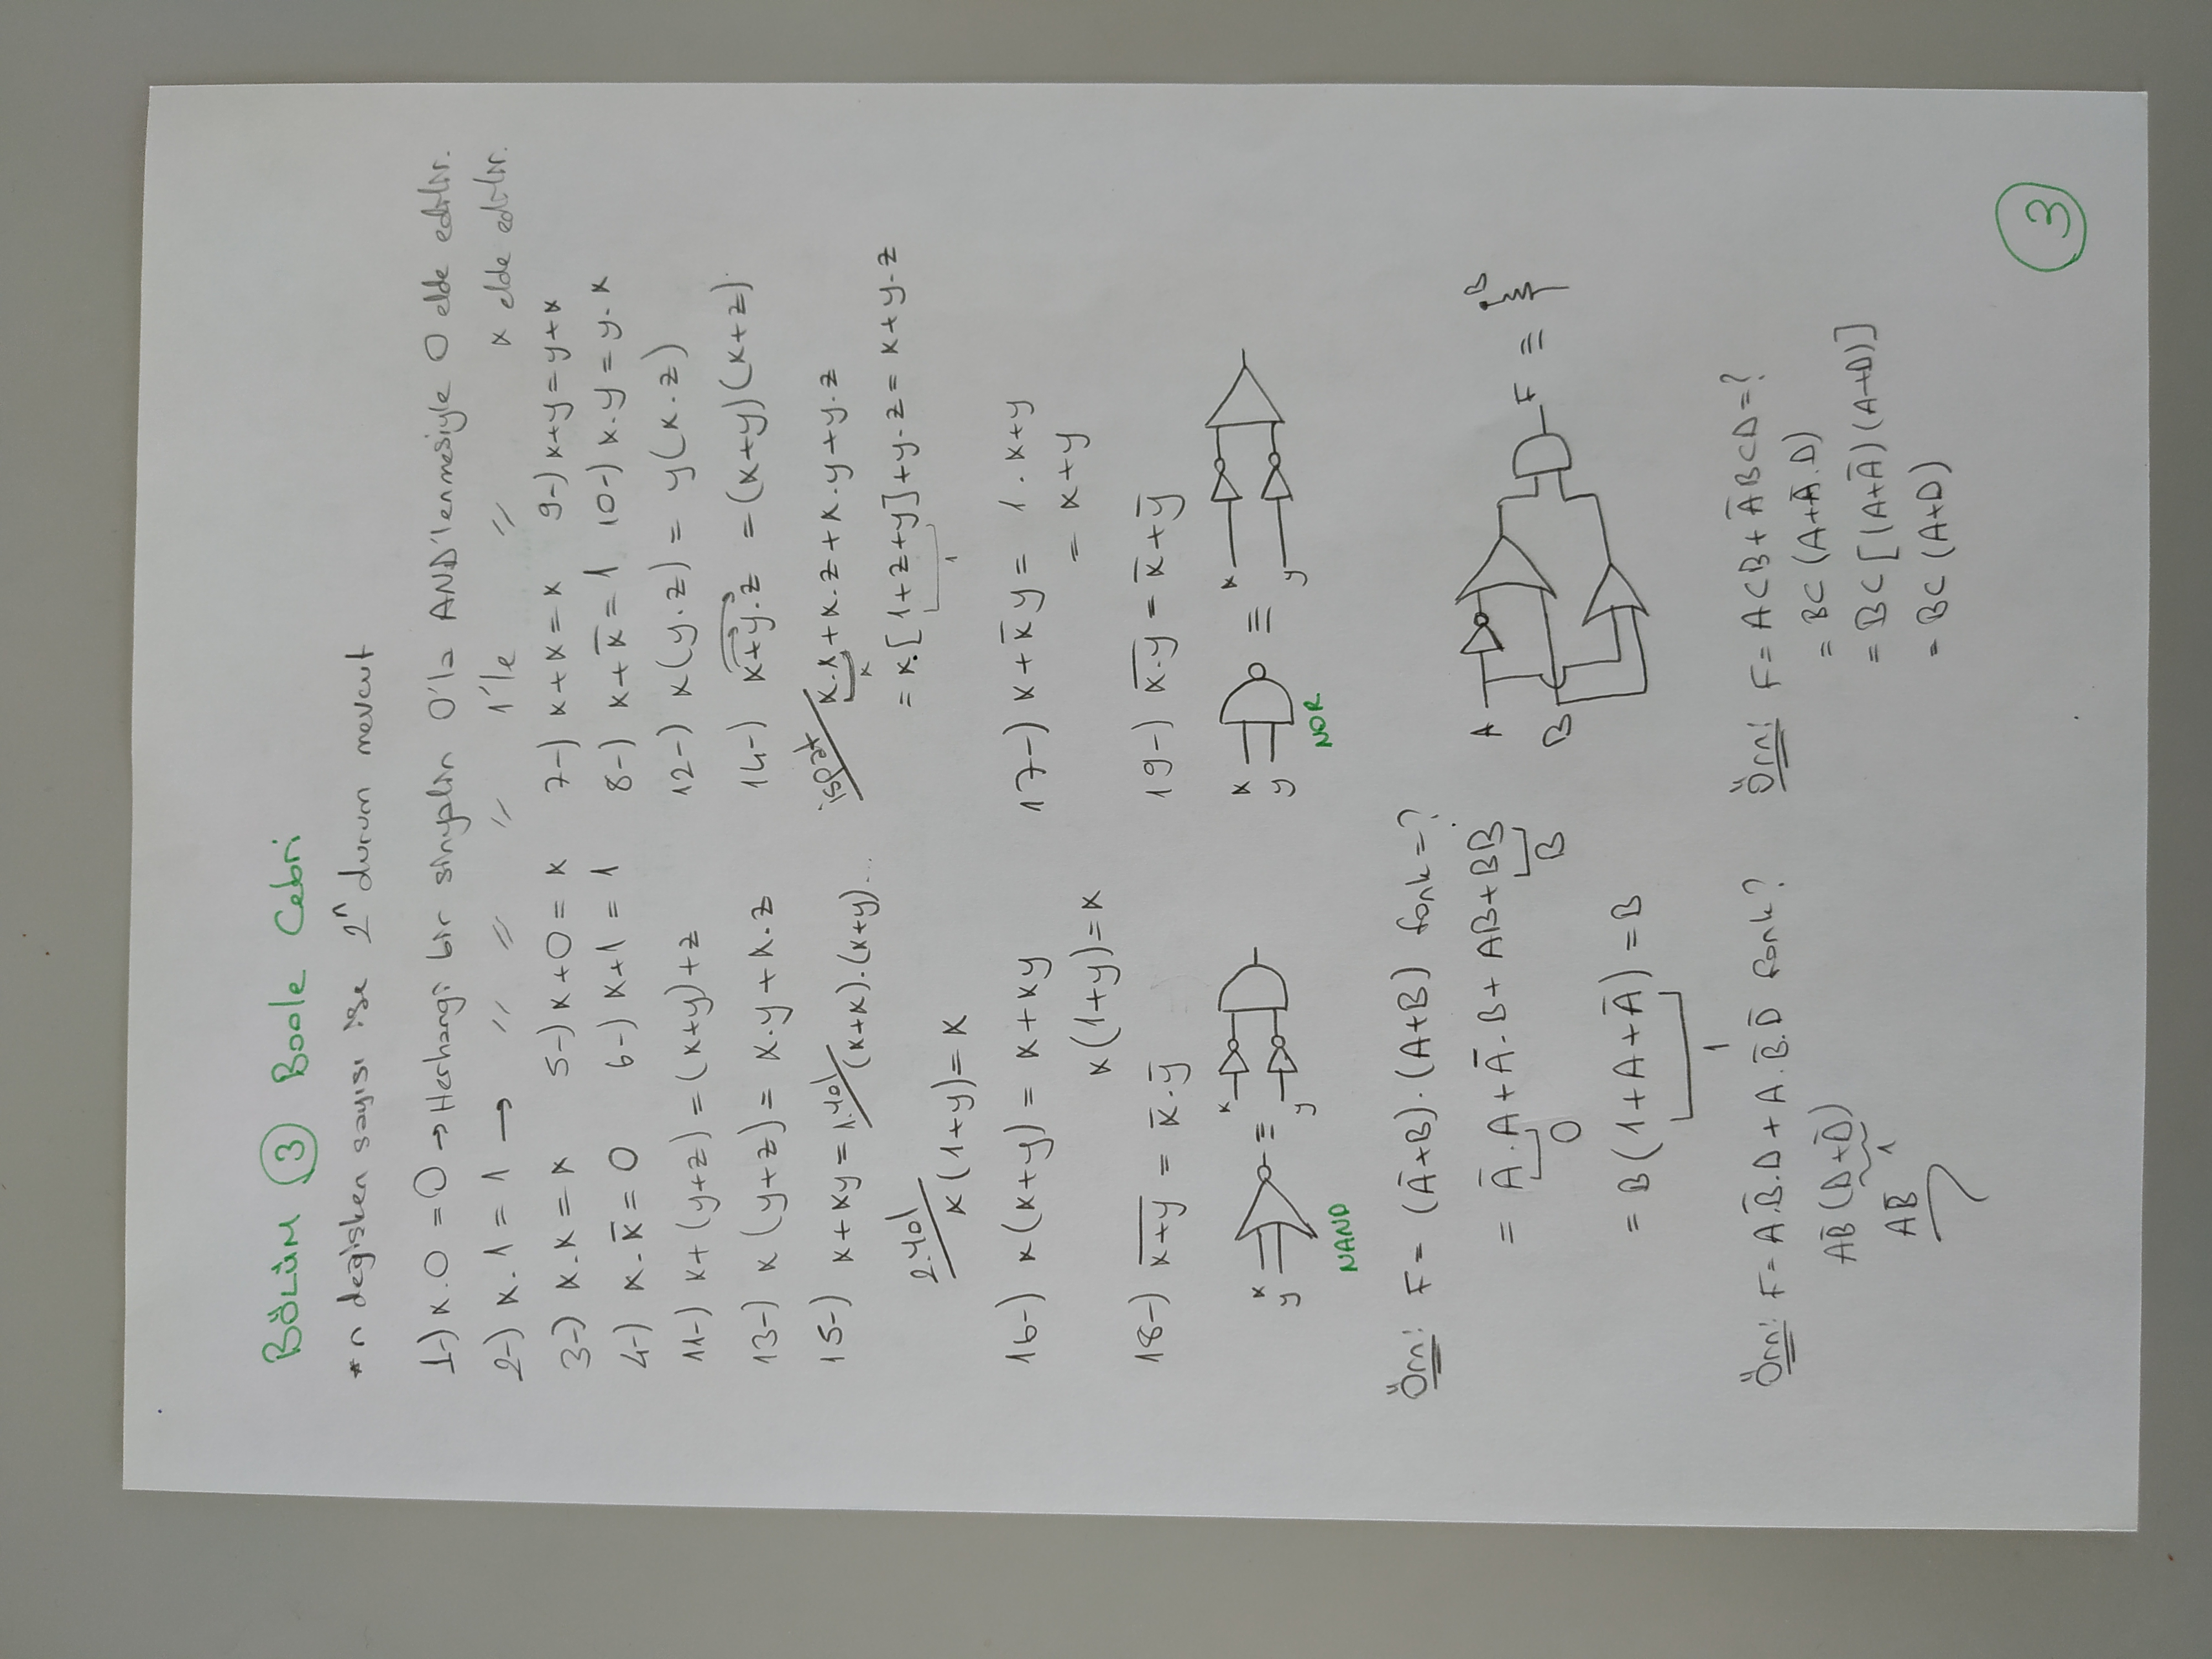 BÖLÜM 3 Boole Cebri
* n değişken sayısı ise 2ⁿ durum mevcut
1-) x.0 = 0 → Herhangi bir sinyalin 0'la AND'lenmesiyle 0 elde edilir.
2-) x.1 = 1 → " " " 1'le " x elde edilir.
3-) x.x = x 5-) x+0 = x 7-) x+x = x 9-) x+y = y+x
4-) x.x̄ = 0 6-) x+1 = 1 8-) x+x̄ = 1 10-) x.y = y.x
11-) x+(y+z) = (x+y)+z 12-) x(y.z) = y(x.z)
13-) x(y+z) = x.y+x.z 14-) x+y.z = (x+y)(x+z)
15-) x+xy = 1.Yol (x+x).(x+y)...
2.Yol
x(1+y) = x
ispat x.x+x.z+x.y+y.z
x
= x.[1+z+y]+y.z = x+y.z
1
16-) x(x+y) = x+xy
x(1+y) = x
17-) x+x̄y = 1.x+y
= x+y
18-) x̅+̅y̅ = x̄.ȳ 19-) x̅.̅y̅ = x̄+ȳ
x y ≡ x y
NAND
x y ≡ x y
NOR
Örn: F = (Ā+B).(A+B) fonk=?
= Ā.A+Ā.B+AB+BB
0 B
= B(1+A+Ā) = B
1
A B F ≡ B
Örn: F = A.B̄.D+A.B̄.D̄ fonk?
AB̄(D+D̄)
1
AB̄
Örn: F = ACB+ĀBCD=?
= BC(A+Ā.D)
= BC[(A+Ā)(A+D)]
= BC(A+D)
3